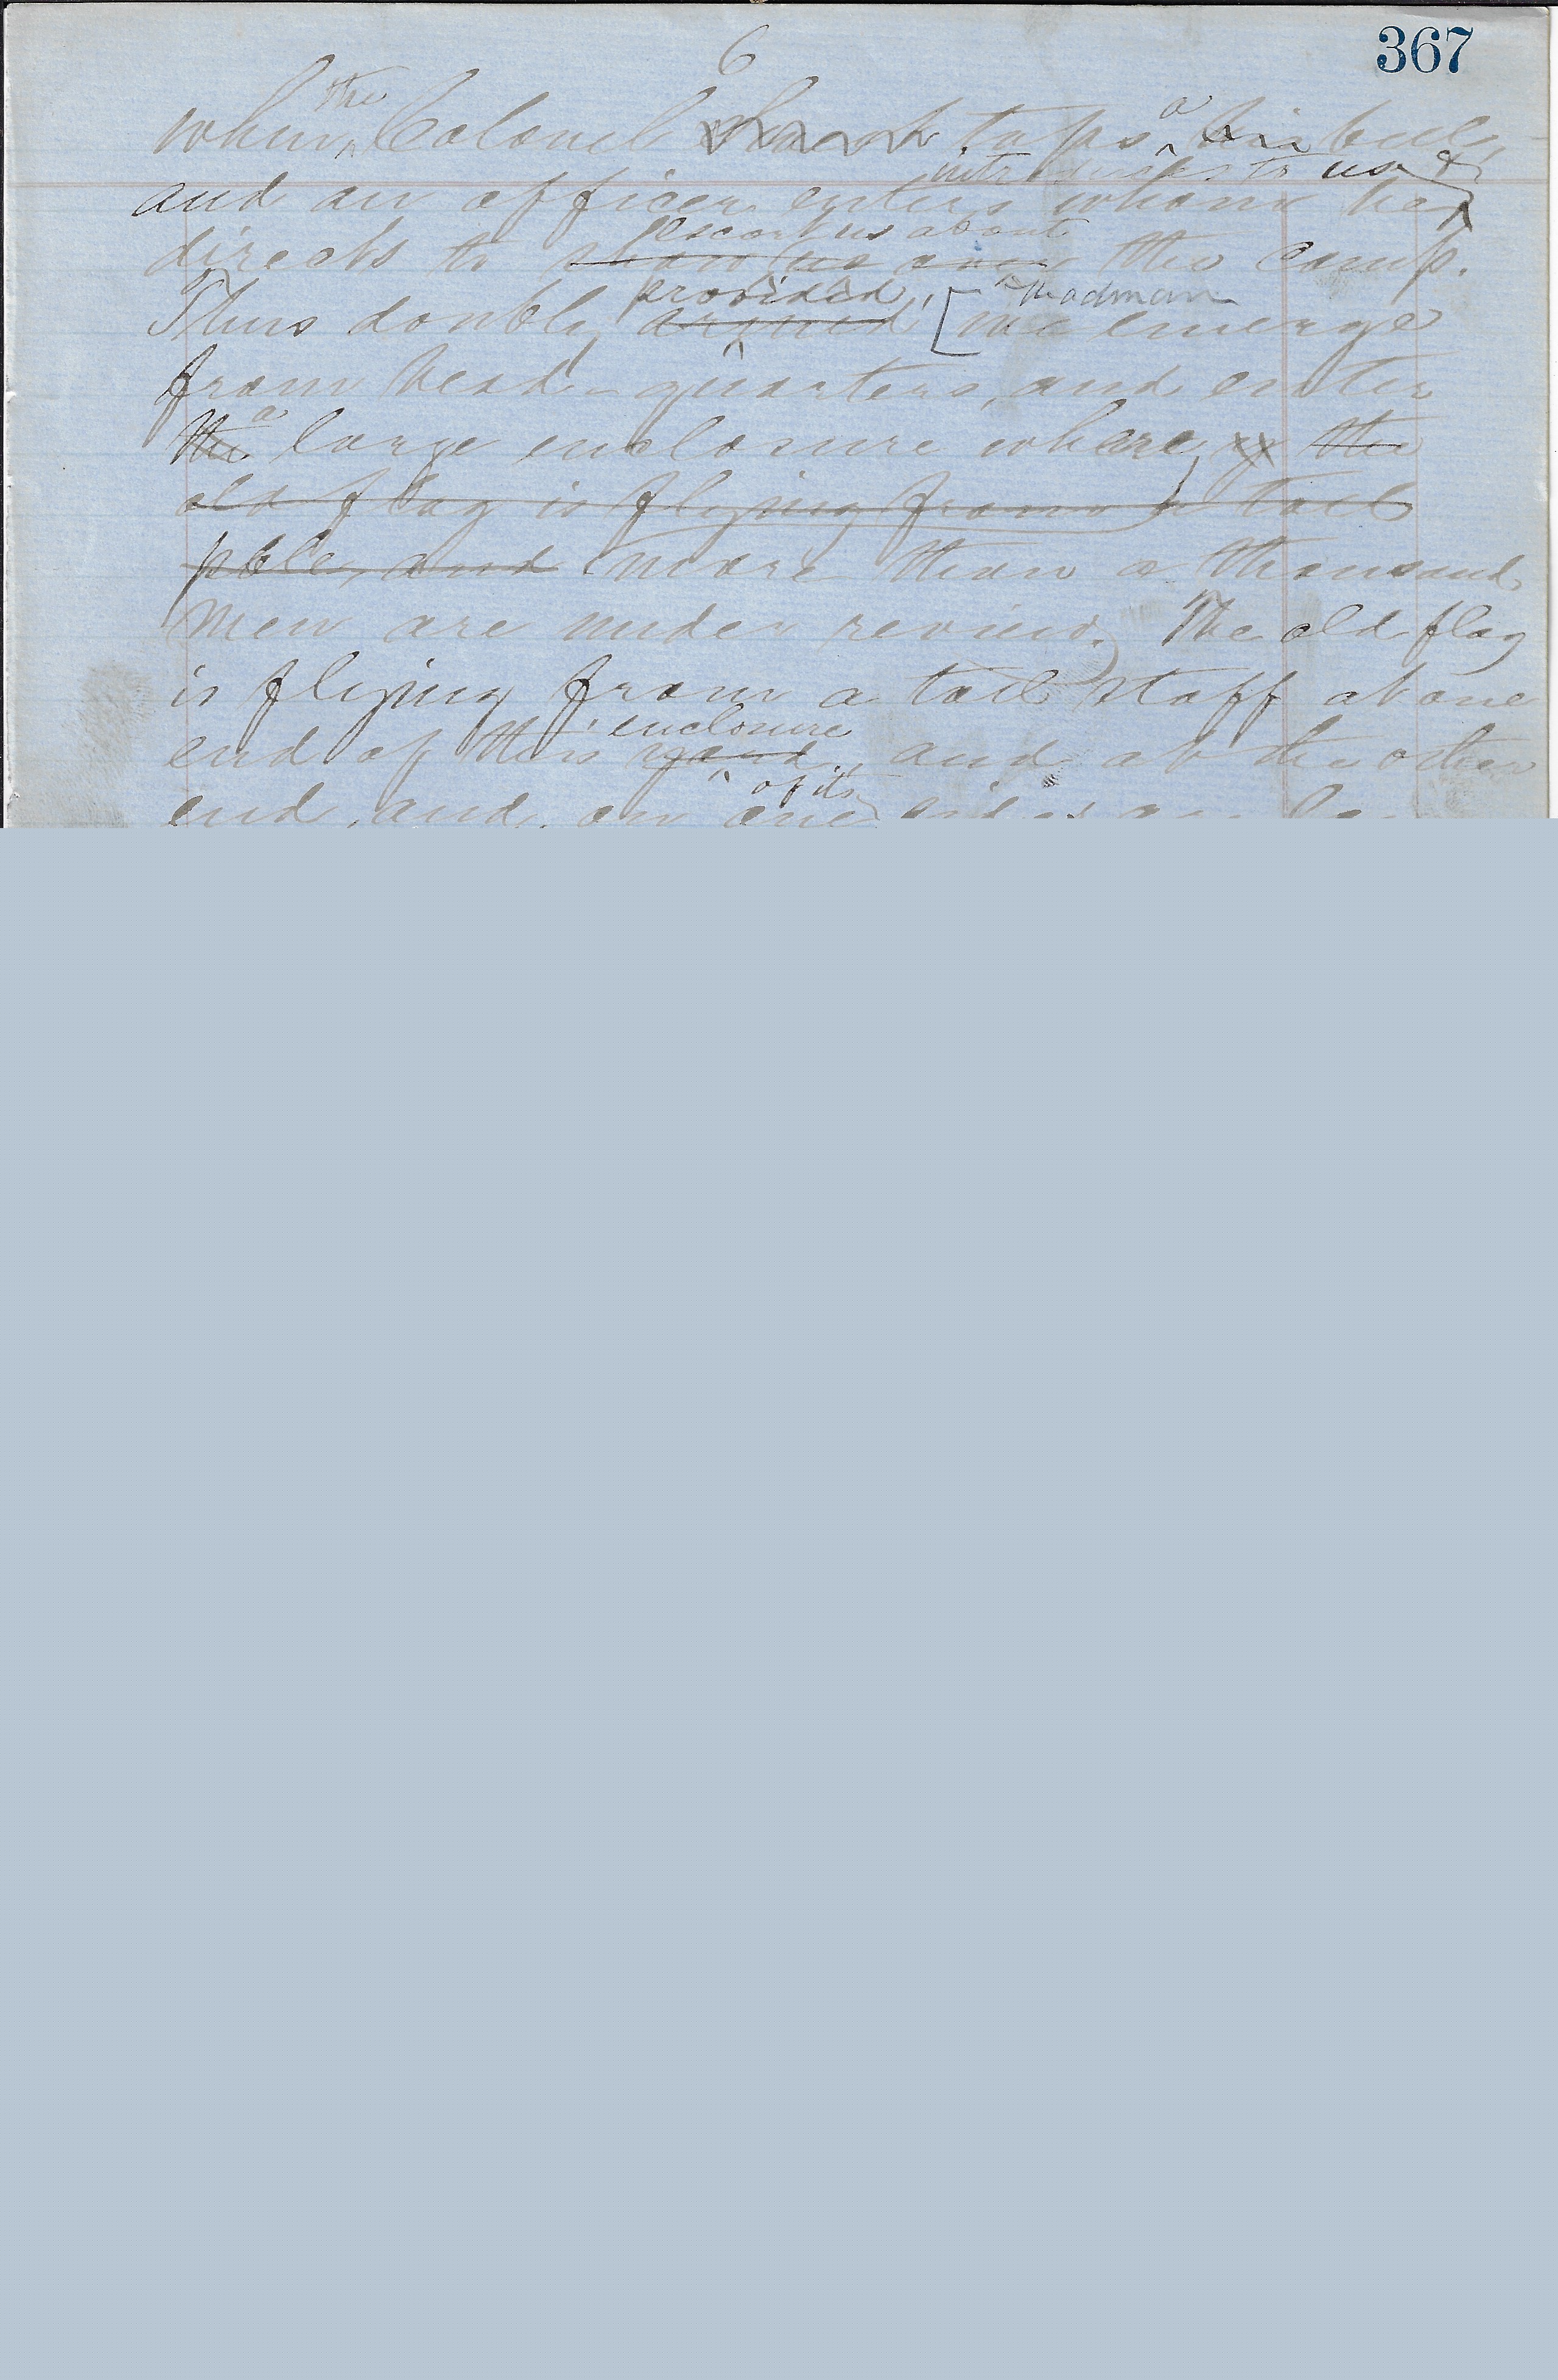 6
367
when the Colonel taps a his bell,
and an officer enters whom he introduces to us &
directs to show us over escort us about the camp.
Thus doubly armed provided, [we emerge Madman
from head-quarters, and enter
the a large enclosure where, the
old flag is flying from a tall
pole, and more than a thousand
men are under review. The old flag
is flying from a tall staff at one
end of this yard enclosure, and at the other
end, and, on one of its